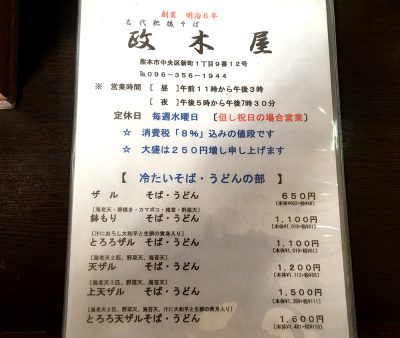 創業 明治6年
名代肥後そば
政木屋
熊本市中央区新町1丁目9番12号
℡096-356-1944
※ 営業時間 [昼] 午前11時から午後3時
[夜] 午後5時から午後7時30分
定休日 毎週水曜日 [但し祝日の場合営業]
☆ 消費税「8%」込みの値段です
☆ 大盛は250円増し申し上げます
【 冷たいそば・うどんの部 】
ザル そば・うどん 650円
[本体¥602+税¥48]
[海老天・卵焼き・カマボコ・椎茸・野菜天]
鉢もり そば・うどん 1,100円
[本体¥1,019+税¥81]
[汁におろし大和芋と生卵の黄身入り]
とろろザル そば・うどん 1,100円
[本体¥1,019+税¥81]
[海老天2匹、野菜天、海苔天]
天ザル そば・うどん 1,200円
[本体¥1,112+税¥88]
[海老天2匹、野菜天、海苔天]
上天ザル そば・うどん 1,500円
[本体¥1,389+税¥111]
[海老天2匹、野菜天、海苔天、汁に大和芋と生卵の黄身入り]
とろろ天ザル そば・うどん 1,600円
[本体¥1,481+税¥118]